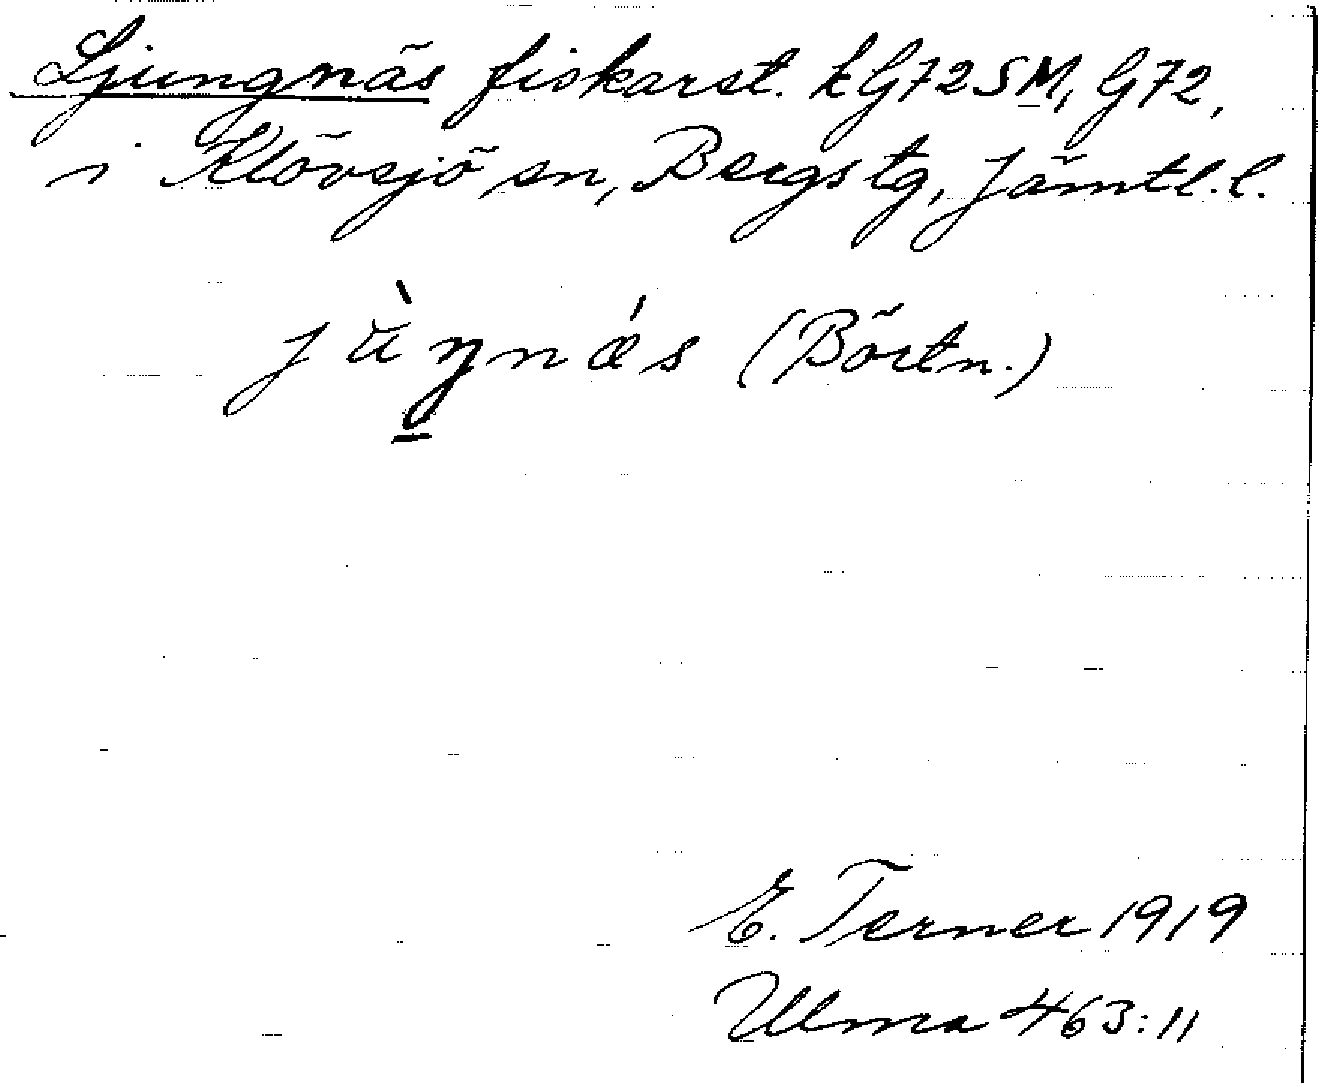 Ljungnäs fiskarst. k G72SM, G72,
i Klövsjö sn, Bergs tg, Jämtl. l.
jùŋnǽs (Börtn.)
E. Terner 1919
Ulma 463:11